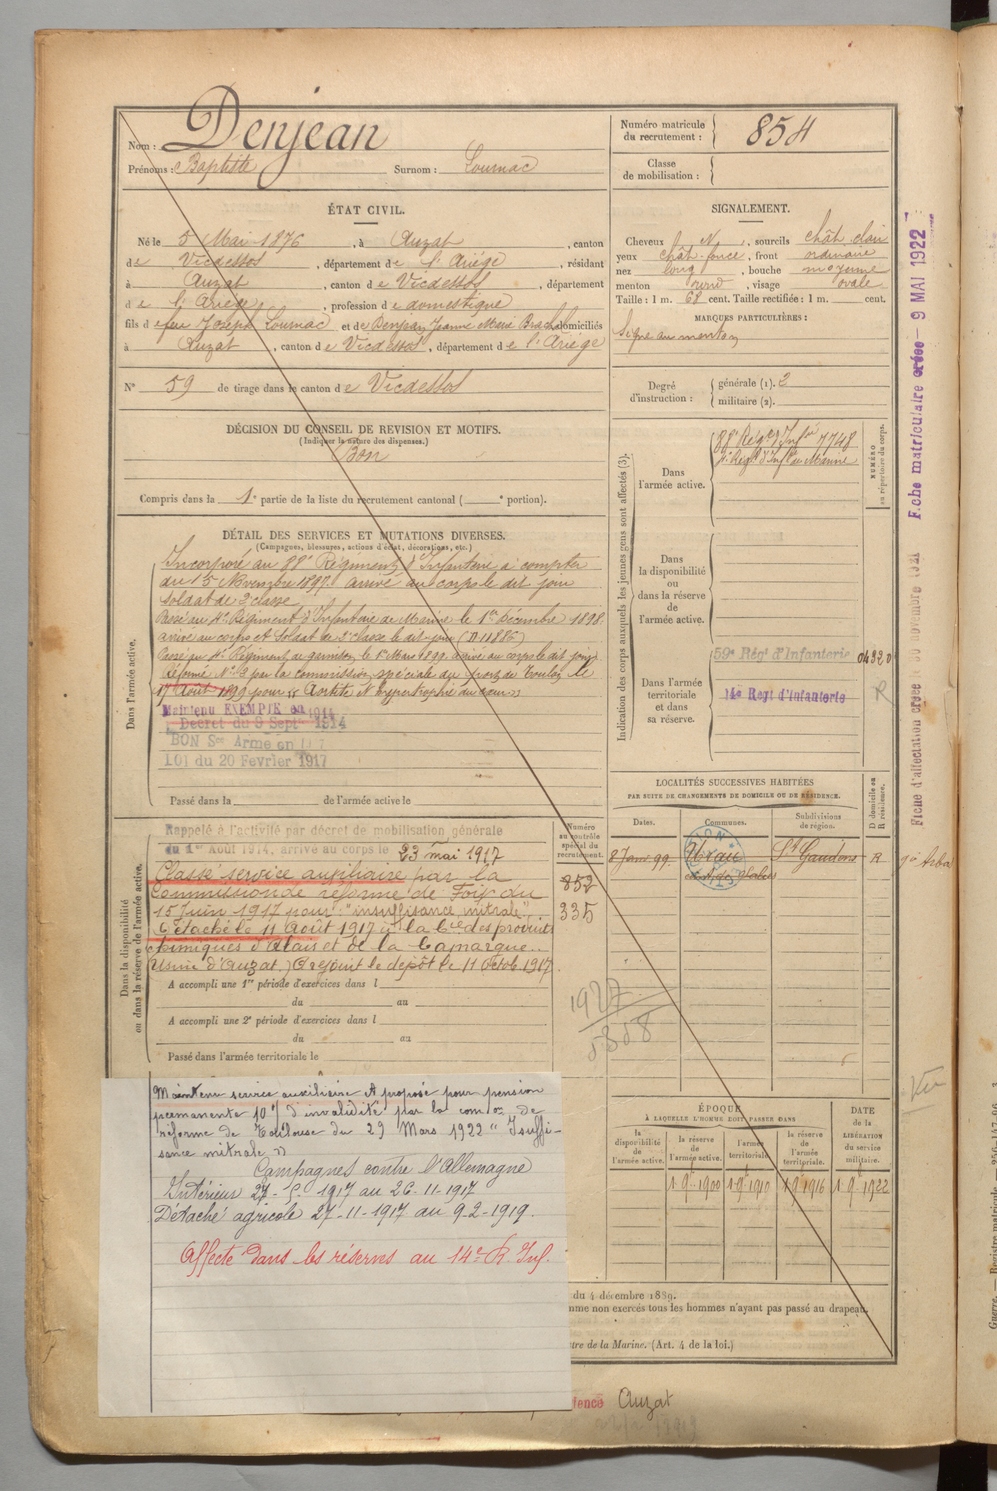 Nom : Denjean
Prénoms : Baptiste Surnom : Lournac
Numéro matricule du recrutement : 854
Classe de mobilisation :
ÉTAT CIVIL.
Né le 5 Mai 1876, à Auzat, canton
de Vicdessos, département de l'Ariège, résidant
à Auzat, canton de Vicdessos, département
de l'Ariège, profession de domestique
fils de feu Joseph Lournac et de Denjean Jeanne Marie domiciliés
à Auzat, canton de Vicdessos, département de l'Ariège
N° 59 de tirage dans le canton de Vicdessos
SIGNALEMENT.
Cheveux N, sourcils chât. clair
yeux chât. foncé, front ordinaire
nez long, bouche moyenne
menton rond, visage ovale
Taille : 1 m. 68 cent. Taille rectifiée : 1 m. cent.
MARQUES PARTICULIÈRES :
Signe au menton
Degré d'instruction : générale (1). 2
militaire (2).
DÉCISION DU CONSEIL DE REVISION ET MOTIFS.
(Indiquer la nature des dispenses.)
Bon
Compris dans la 1e partie de la liste du recrutement cantonal ( e portion).
DÉTAIL DES SERVICES ET MUTATIONS DIVERSES.
(Campagnes, blessures, actions d'éclat, décorations, etc.)
Dans l'armée active.
Incorporé au 88e Régiment d'Infanterie à compter
du 15 Novembre 1897. arrivé au corps le dit jour
soldat de 2e classe
Passé au 4e Régiment d'Infanterie de Marine le 1er Décembre 1898
arrivé au corps et soldat de 2e classe le dit jour
Passé au 4e Régiment de garnison le 1er Mars 1899 arrivé au corps le dit jour
Réformé N° 2 par la commission spéciale du port de Toulon le
17 Août 1899 pour
Maintenu EXEMPTÉ en 1914
Décret du 9 Sept. 1914
BON Sce Armé en
Loi du 20 Fevrier 1917
Passé dans la de l'armée active le
Dans la disponibilité ou dans la réserve de l'armée active.
Rappelé à l'activité par décret de mobilisation générale
du 1er Août 1914, arrivé au corps le 23 mai 1917
Classé service auxiliaire par la
Commission de réforme de Foix du
15 Juin 1917 pour "insuffisance mitrale"
Détaché le 11 Août 1917 à la Cie des produits
chimiques d'Alais et de la Camargue
Usine d'Auzat) A rejoint le dépôt le 11 Octob. 1917
A accompli une 1re période d'exercices dans l
du au
A accompli une 2e période d'exercices dans l
du au
Passé dans l'armée territoriale le
Numéro au contrôle spécial du recrutement.
852
335
Indication des corps auxquels les jeunes gens sont affectés (3).
Dans l'armée active.
88e Régt d'Infie 7748
4e Régt d'Infie de Marine
NUMÉRO au répertoire du corps.
Dans la disponibilité ou dans la réserve de l'armée active.
Dans l'armée territoriale et dans sa réserve.
59e Régt d'Infanterie 04320
14e Regt d'Infanterie
R
LOCALITÉS SUCCESSIVES HABITÉES
PAR SUITE DE CHANGEMENTS DE DOMICILE OU DE RÉSIDENCE.
Dates. Communes. Subdivisions de région. D domicile ou R résidence.
8 Janv 99 St Gaudens R
1927
5358
ÉPOQUE
À LAQUELLE L'HOMME DOIT PASSER DANS
la disponibilité de l'armée active.
la réserve de l'armée active.
l'armée territoriale.
la réserve de l'armée territoriale.
DATE de la LIBÉRATION du service militaire.
1 9e 1900 1 9e 1910 1 9e 1916 1 9e 1922
Maintenu service auxiliaire et proposé pour pension
permanente 10% d'invalidité par la com on de
réforme de Toulouse du 29 Mars 1922 "Isuffi-
sance mitrale"
Campagnes contre l'Allemagne
Intérieur 27-5-1917 au 26-11-1917
Détaché agricole 27-11-1917 au 9-2-1919.
Affecté dans les réserves au 14e R. Inf.
du 4 décembre 1889.
mme non exercés tous les hommes n'ayant pas passé au drapeau.
tre de la Marine. (Art. 4 de la loi.)
dence Auzat
Fiche matriculaire créée - 9 MAI 1922
Fiche d'affectation créée le 30 novembre 1921